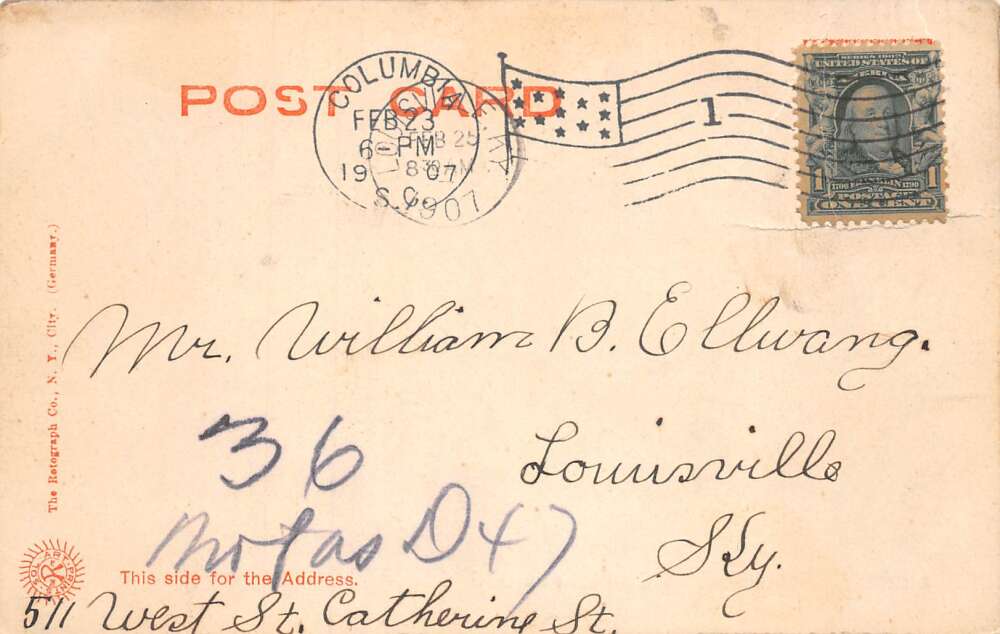 POST CARD
COLUMBIA
FEB 23
6-PM
1907
S.C.
LOUISVILLE, KY.
FEB 25
830 AM
1907
1
SERIES 1902
UNITED STATES OF
AMERICA
1706 FRANKLIN 1790
1 POSTAGE 1
ONE CENT
The Rotograph Co., N. Y., City. (Germany.)
Mr. William B. Ellwang.
Louisville
Ky.
36
Not as D 47
This side for the Address.
511 West St. Catherine St.